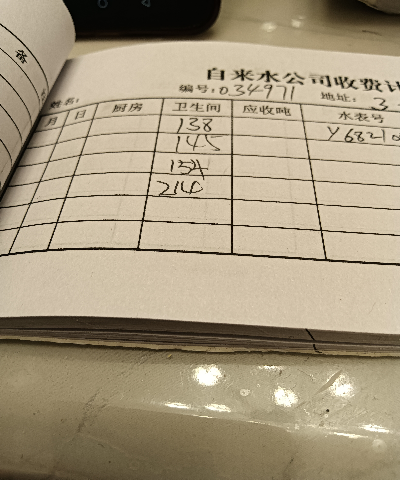 备
自来水公司收费
编号:034971 地址: 3
姓名:
月 日 厨房 卫生间 应收吨 水表号
138 Y6821
145
154
214